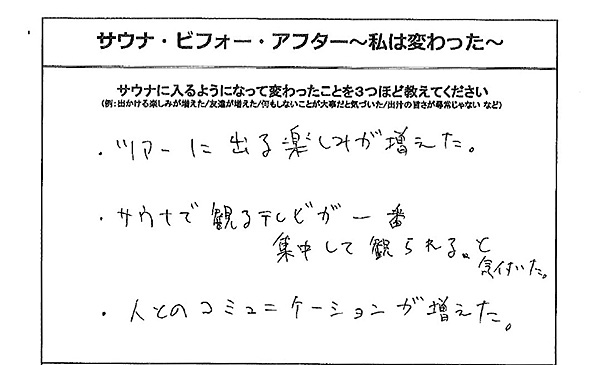 サウナ・ビフォー・アフター～私は変わった～
サウナに入るようになって変わったことを3つほど教えてください
(例:出かける楽しみが増えた/友達が増えた/何もしないことが大事だと気づいた/出汁の旨さが尋常じゃない など)
・ツアーに出る楽しみが増えた。
・サウナで観るテレビが一番
集中して観られる。と
気付いた。
・人とのコミュニケーションが増えた。